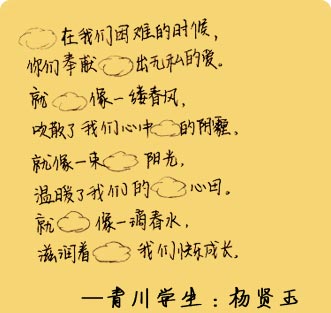 在我们困难的时候，
你们奉献出无私的爱。
就像一缕春风，
吹散了我们心中的阴霾。
就像一束阳光，
温暖了我们的心田。
就像一滴春水，
滋润着我们快乐成长。
—青川学生：杨贤玉